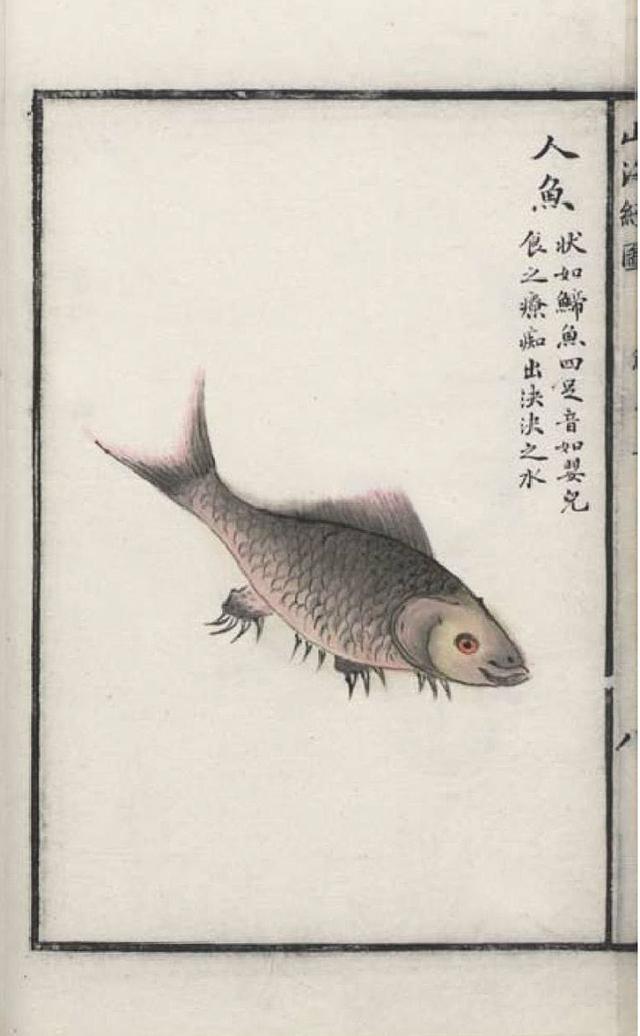 山海經圖
人魚
状如䱱魚四足音如嬰兒
食之療痴出決決之水